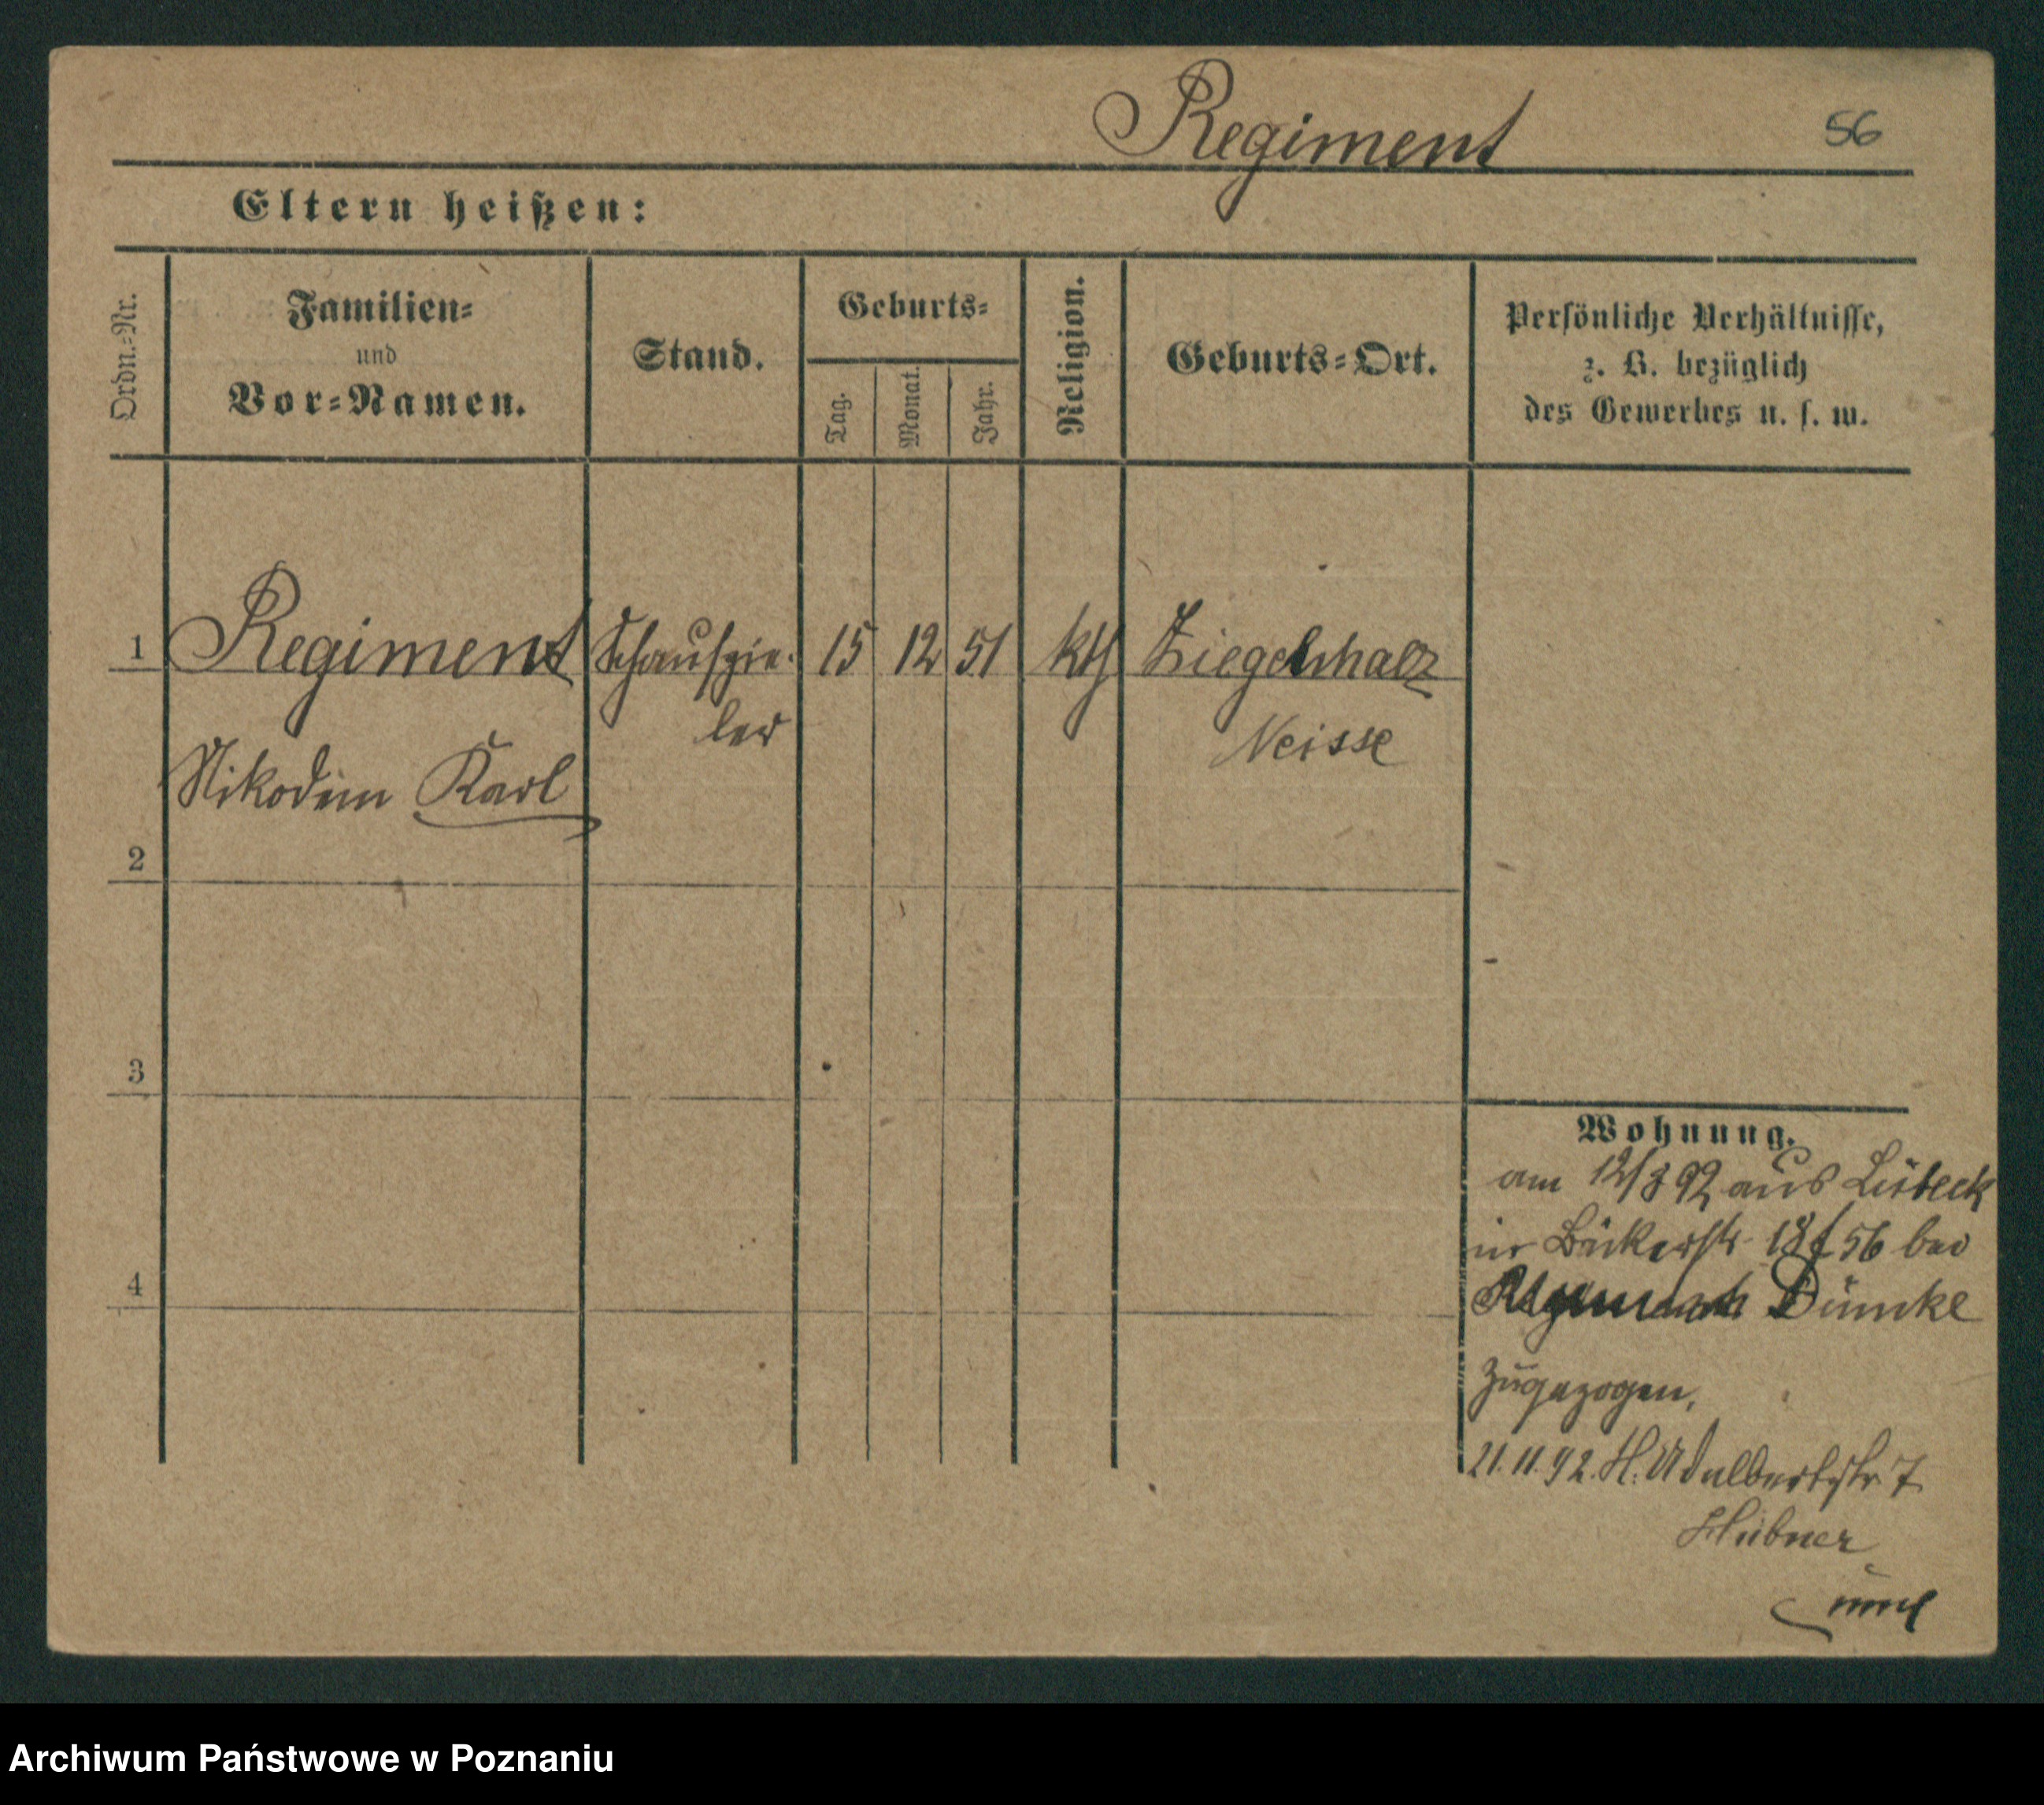 Regiment 56
Eltern heißen:
Ordn.-Nr.
Familien-
und
Vor-Namen.
Stand.
Geburts-
Tag.
Monat.
Jahr.
Religion.
Geburts-Ort.
Persönliche Verhältnisse,
z. B. bezüglich
des Gewerbes u. s. w.
1 Regiment Schauspie- 15 12 51 kth
ler Neisse
Nikodem Karl
2
3
4
Wohnung.
am 12/3 92 aus Lübeck
in Bäckerstr 18 56 bei
Dümke
zugezogen,
21.11.92. H. Adalbertstr 7
Hübner
Archiwum Państwowe w Poznaniu